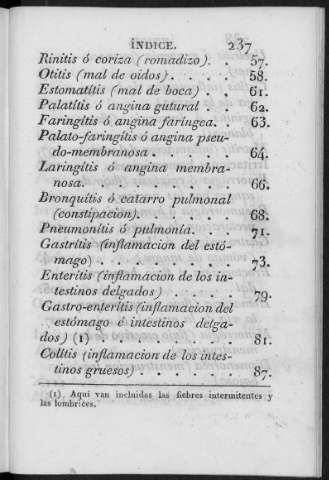 ÍNDICE. 237
Rinitis ó coriza (romadizo). . 57.
Otitis (mal de oidos). . . . 58.
Estomatítis (mal de boca) . . 61.
Palatítis ó angina gutural . . 62.
Faringítis ó angina faríngea. . 63.
Palato-faringítis ó angina pseu-
do-membranosa . . . . . 64.
Laringítis ó angina membra-
nosa. . . . . . . . . 66.
Bronquítis ó catarro pulmonal
(constipacion). . . . . . 68.
Pneumonítis ó pulmonía. . . . 71.
Gastrítis (inflamacion del estó-
mago) . . . . . . . . 73.
Enterítis (inflamacion de los in-
testinos delgados) . . . . 79.
Gastro-enterítis (inflamacion del
estómago é intestinos delga-
dos) (1) . . . . . . . . 81.
Colítis (inflamacion de los intes-
tinos gruesos) . . . . . . 87.
(1) Aqui van incluidas las fiebres intermitentes y
las lombrices.